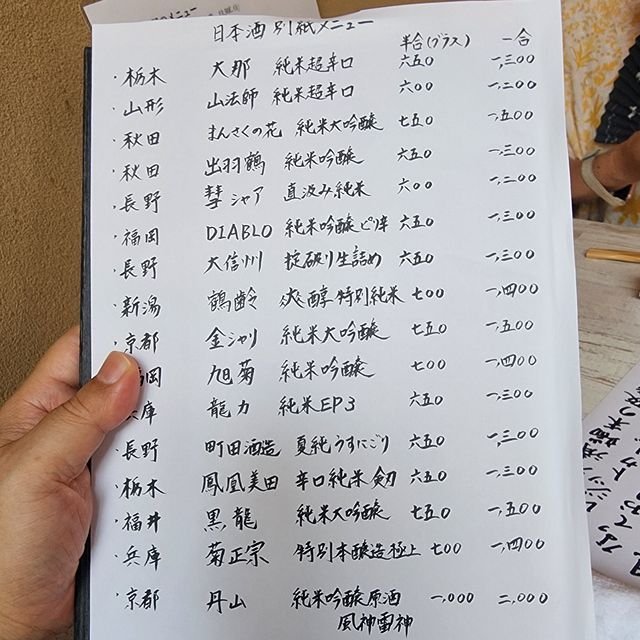 日本酒別紙メニュー
半合(グラス) 一合
・栃木 大那 純米超辛口 六五〇 一、三〇〇
・山形 山法師 純米超辛口 六〇〇 一、二〇〇
・秋田 まんさくの花 純米大吟醸 七五〇 一、五〇〇
・秋田 出羽鶴 純米吟醸 六五〇 一、三〇〇
・長野 彗シャア 直汲み純米 六〇〇 一、二〇〇
・福岡 DIABLO 純米吟醸ピリ辛 六五〇 一、三〇〇
・長野 大信州 掟破り生詰め 六五〇 一、三〇〇
・新潟 鶴齢 爽醇 特別純米 七〇〇 一、四〇〇
・京都 金シャリ 純米大吟醸 七五〇 一、五〇〇
岡 旭菊 純米吟醸 七〇〇 一、四〇〇
庫 龍力 純米EP3 六五〇 一、三〇〇
・長野 町田酒造 夏純うすにごり 六五〇 一、三〇〇
・栃木 鳳凰美田 辛口純米 剱 六五〇 一、三〇〇
・福井 黒龍 純米大吟醸 七五〇 一、五〇〇
・兵庫 菊正宗 特別本醸造極上 七〇〇 一、四〇〇
・京都 丹山 純米吟醸原酒 一、〇〇〇 二、〇〇〇
風神雷神